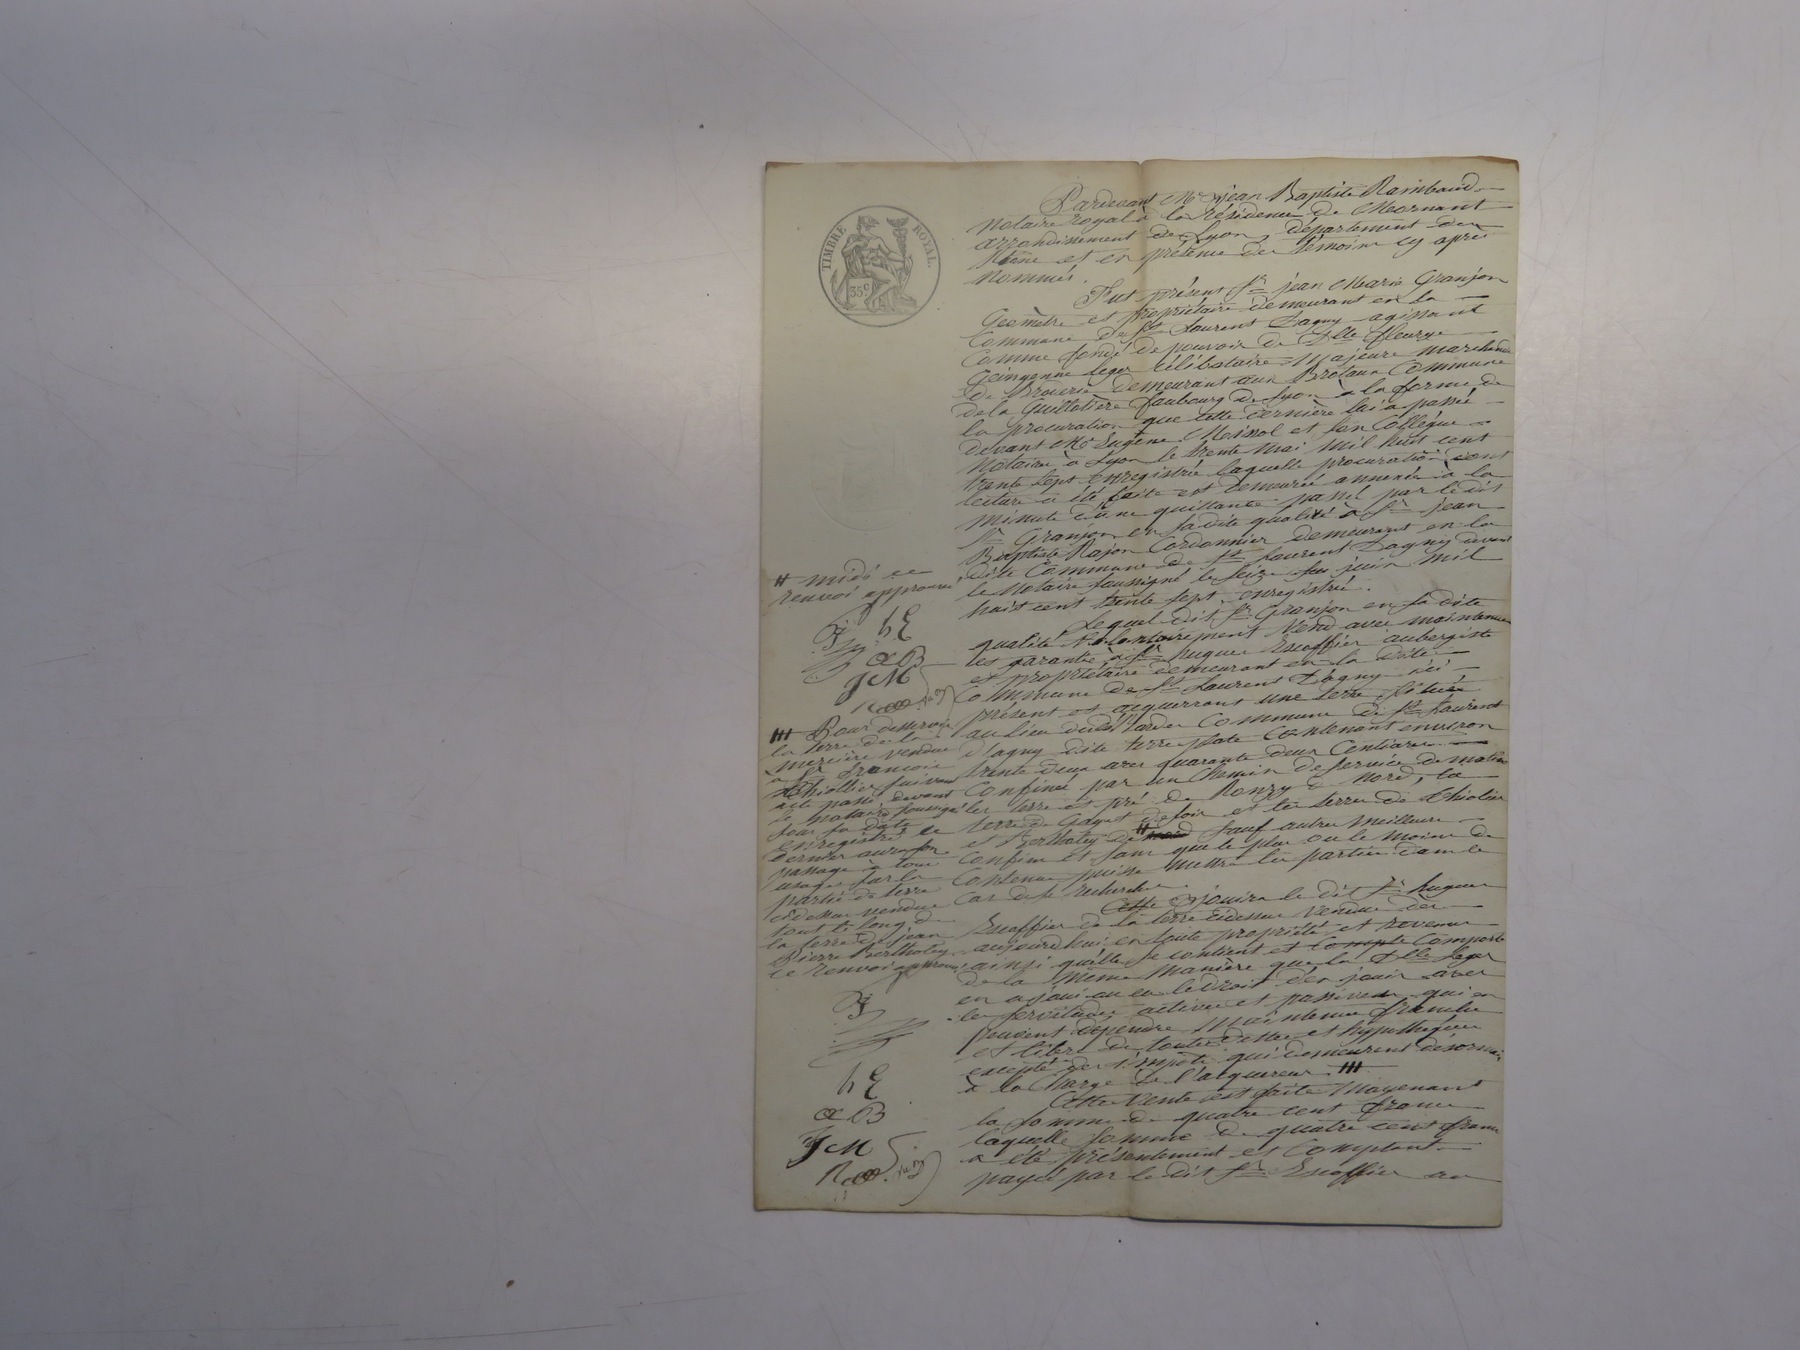 TIMBRE ROYAL.
35c
Pardevant Me jean Baptiste Raimbaud
Notaire royal à la résidence de Mornant
arrondissement de Lyon, département du
Rhône et en présence des témoins cy après
nommés.
Fut présent Sr jean Marie Granjon
Géomètre et propriétaire demeurant en la
Commune de St Laurent Dagny agissant
Comme fondé de pouvoir de Dlle fleurye
Leger Célibataire Majeure marchande
de Broderie demeurant aux Brotaux Commune
de la Guillotière faubourg de Lyon à la forme de
la procuration que cette dernière lui a passée
devant Me Eugène et son Collègue
Notaire à Lyon le trente mai mil huit cent
trente sept enregistrée laquelle procuration dont
lecture a été faite est demeurée annexée à la
minute d'une quittance passée par le dit
Sr Granjon en sa dite qualité à Sr jean
Baptiste Rajon Cordonnier demeurant en la
dite Commune de St Laurent Dagny devant
le Notaire soussigné le seize juin mil
huit cent trente sept, enregistrée.
Lequel dit Sr Granjon en sa dite
qualité volontairement vend avec maintenue
les garantie, à Sr hugues Escoffier aubergiste
et propriétaire demeurant en la dite
Commune de St Laurent Dagny ici
présent et acquerrant une terre située
au lieu Commune de St Laurent
Dagny dite terre plate Contenant environ
trente deux ares quarante deux Centiares
Confinée par un Chemin de service de matin
les terre et pré de Ronzy de nord, la
terre de Gayet de soir et les terres de thiolier
et Bertholey de # sauf autres meilleurs
Confins et sans que le plus ou le moins de
Contenue puisse mettre les parties dans le
Cas de se rechercher.
jouira le dit Sr hugues
Escoffier de la terre cidessus vendue dès
aujourdhui en toute propriété et revenu
ainsi quelle se contient et Comporte
de la même manière que la Dlle Leger
en a joui ou eu le droit d'en jouir avec
les servitudes actives et passives qui en
peuvent dépendre maintenue franche
et libre de toutes dettes et hypothèques
excepté des impôts qui demeurent desormais
à la Charge de l'acquereur ###
Cette vente est faite Moyenant
la somme de quatre cent francs
laquelle somme de quatre cent francs
a été présentement et Comptant
payée par le dit Sr Escoffier au
# midi ce
renvoi approuvé
hE
JM
### Pour desservir
la terre de la
mercière vendue
à Sr françois
thiollier suivant
acte passé devant
le Notaire soussigné
sous sa date
enregistré ce
dernier aura son
passage à tous
usages sur la
partie de terre
cidessus vendue
tout le long de
la terre de jean
Pierre Berthotey
ce renvoi approuvé
hE
JM